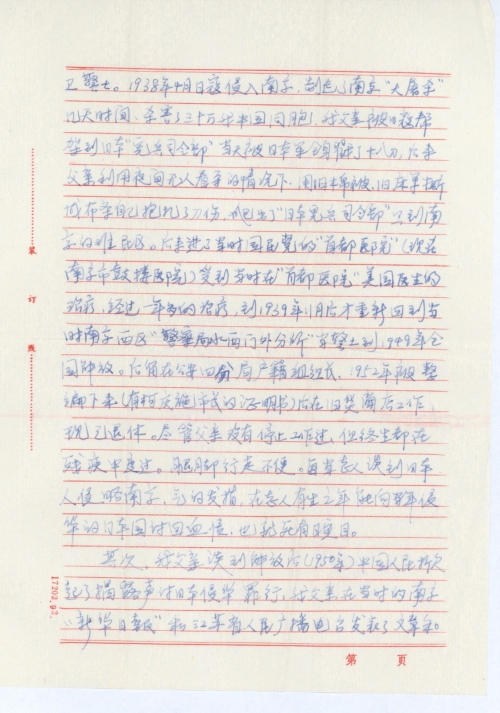 卫警士。1938年4月日寇侵入南京，制造了南京“大屠杀”
几天时间、杀害了三十万我中国同胞，我父亲被日寇帮
到日本“宪兵司令部”当天被日本军刀 了十八刀，后来
父亲利用夜间无人看守的情况下，用旧棉被、旧床单撕
成布条自己包扎了刀伤，出了“日本宪兵司令部”又到南
京的难民区。后来进了当时国民党的“首都医院”（现在
南京市鼓楼医院）受到当时在“首都医院”美国医生的
治疗，经过一年多的治疗，到1939年11月后才重新回到当
时南京西区“警察局水西门外分所”当警士到1949年全
国解放。后留在公安四分局户籍组组长，1952年被整
编下来（有柯庆施市长的证明书）后在旧货商店工作，
现已退休。尽管父亲没有停止工作过，但终生都在
残废中度过。腿脚行走不便。每当老人谈到日本
人侵略南京，老人有生之年能向当年侵
华的日本国讨回血债，也就死有瞑目。
其次，我父亲谈到解放后（1950年）中国人民掀
起了 声讨日本侵华罪行，我父亲在当时的南京
“新华日报”和江苏省人民广播电台发表了文章和
第 页
装 订 线
17202.92.